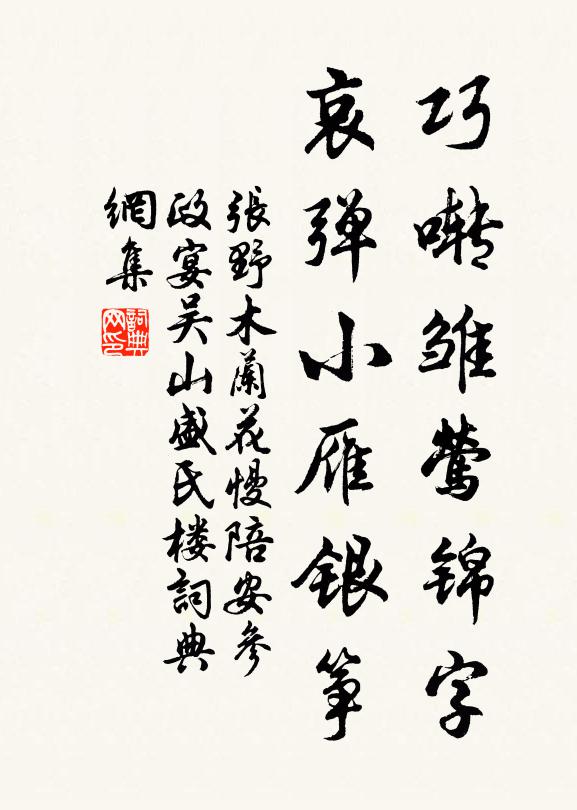 巧啭雏莺锦字
哀弹小雁银筝
張野木蘭花慢陪安參
政宴吴山盛氏楼詞典
網集
詞典
网印